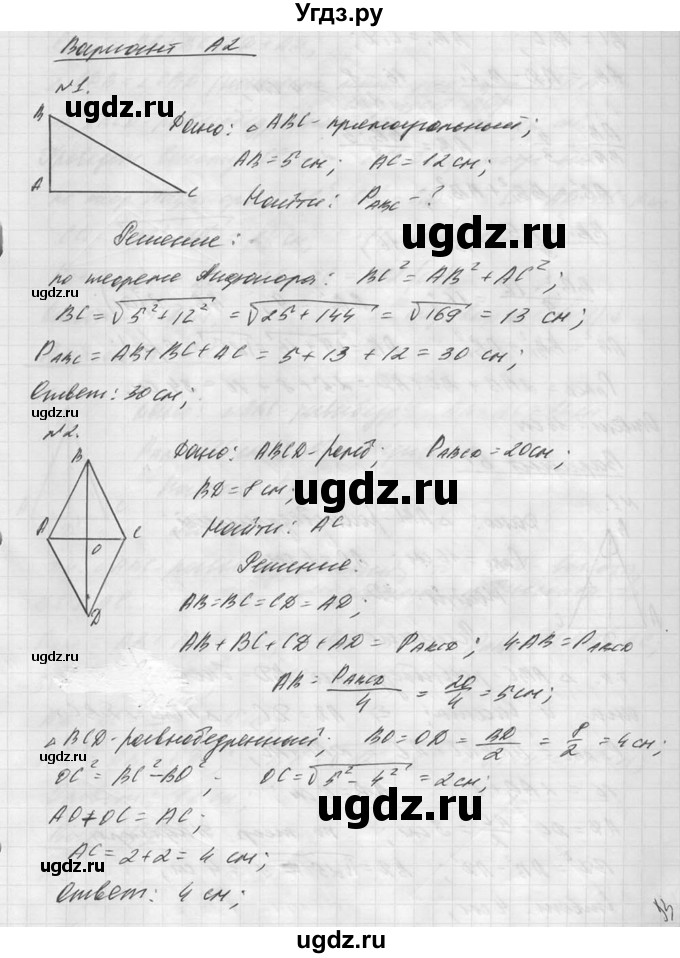 Угдз.ру
Вариант А2
№1.
ugdz.ru
B
A
C
Дано: △ABC - прямоугольный;
AB = 5 см; AC = 12 см;
Найти: P_ABC - ?
ugdz.ru
Решение:
по теореме Пифагора: BC² = AB² + AC²;
ugdz.ru
BC = √5² + 12² = √25 + 144 = √169 = 13 см;
P_ABC = AB + BC + AC = 5 + 13 + 12 = 30 см;
Ответ: 30 см;
ugdz.ru
№2.
B
A
C
O
D
Дано: ABCD - ромб; P_ABCD = 20 см;
BD = 8 см;
ugdz.ru
Найти: AC
Решение:
ugdz.ru
AB = BC = CD = AD;
AB + BC + CD + AD = P_ABCD; 4·AB = P_ABCD
ugdz.ru
AB = P_ABCD/4 = 20/4 = 5 см;
ugdz.ru
△BCD - равнобедренный; BO = OD = BD/2 = 8/2 = 4 см;
OC² = BC² - BO²; OC = √5² - 4² = 2 см;
ugdz.ru
AO + OC = AC;
AC = 2 + 2 = 4 см;
ugdz.ru
Ответ: 4 см;
ugdz.ru